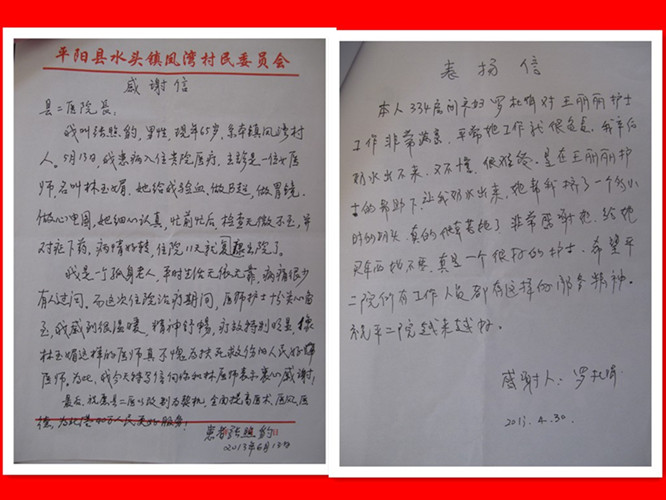 平阳县水头镇凤湾村民委员会
感谢信
县二医院长:
我叫张照豹,男性,现年65岁,系本镇凤湾村
人。5月13日,我患病入住贵院医疗,主诊是一位女医
师,名叫林玉媚,她给我验血、做B超,做胃镜,
做心电图,她细心认真,忙前忙后,检查无微不至,并
对症下药,病情好转,住院11天就康复出院了。
我是一个孤身老人,平时生活无依无靠,病痛很少
有人过问。而这次住院治疗期间,医师护士
至,我感到很温暖,精神舒畅,疗效特别明显,像
林玉媚这样的医师真不愧为扶死救伤的人民好
医师。为此,我今天特写信向您和林医师表示衷心感谢!
最后,祝愿县二医以级别为契机,全面提高医术,医疗,医
德,为
患者张照豹
2013年6月10日
表扬信
本人334房间产妇罗杜娟对王丽丽护士
工作非常满意,平常她工作就很负责。我产后
奶水出不来,又不懂,很难受,是在王丽丽护
士的帮助下,让我奶水出来,她帮我挤了一个多小
时的奶头,真的很辛苦她了,非常感谢她,给她
买东西她不要,真是一个很好的护士,希望平
二院所有工作人员都有这样的服务精神。
祝平二院越来越好。
感谢人:罗杜娟
2013.4.30.